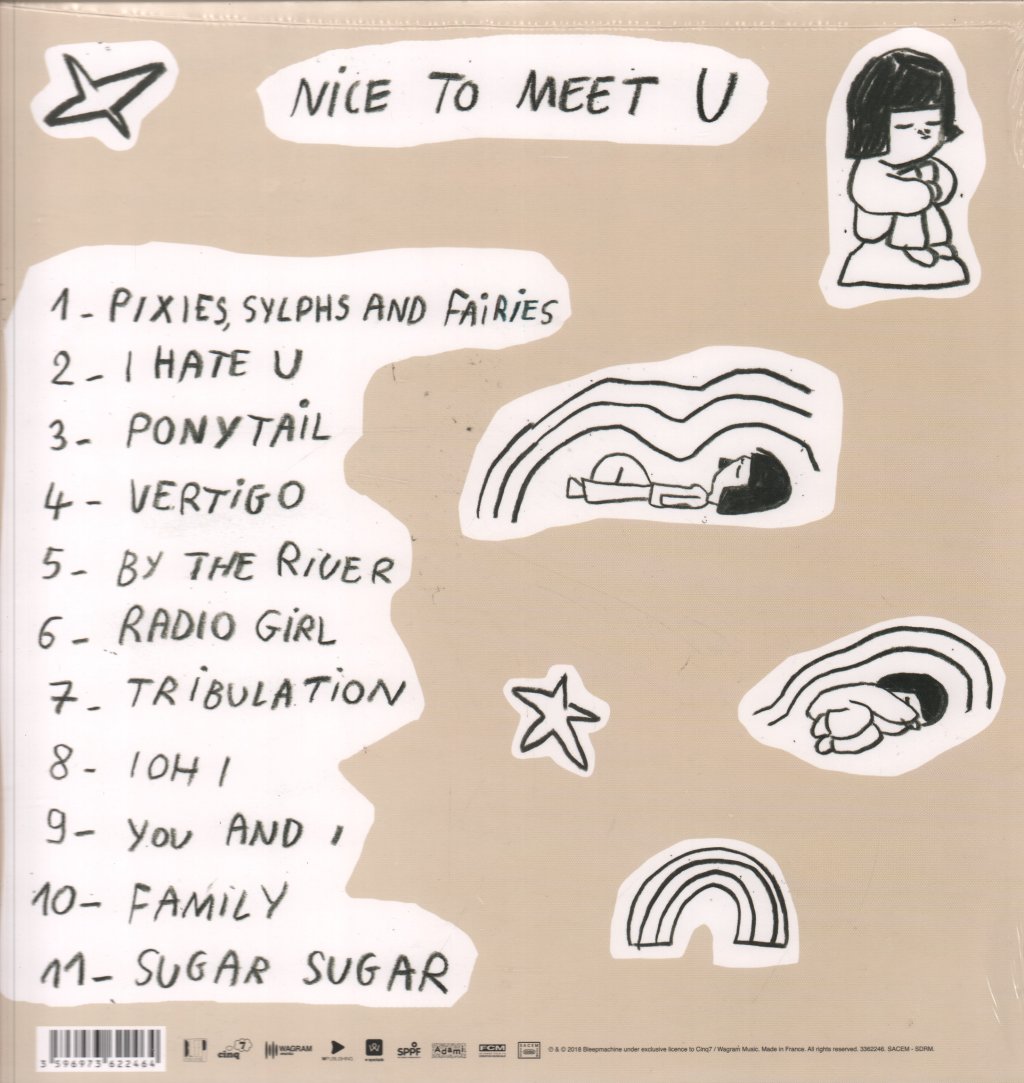 NICE TO MEET U
1 - PIXIES, SYLPHS AND FAiRiES
2 - I HATE U
3 - PONYTAiL
4 - VERTiGO
5 - BY THE RiVER
6 - RADIO GiRL
7 - TRiBULATiON
8 - I OH I
9 - YOU AND I
10 - FAMiLY
11 - SUGAR SUGAR
3 596973 622464
cinq7
WAGRAM
SPPF
Adami
FCM
SACEM
℗ & © 2018 Bleepmachine under exclusive licence to Cinq7 / Wagram Music. Made in France. All rights reserved. 3362246. SACEM - SDRM.